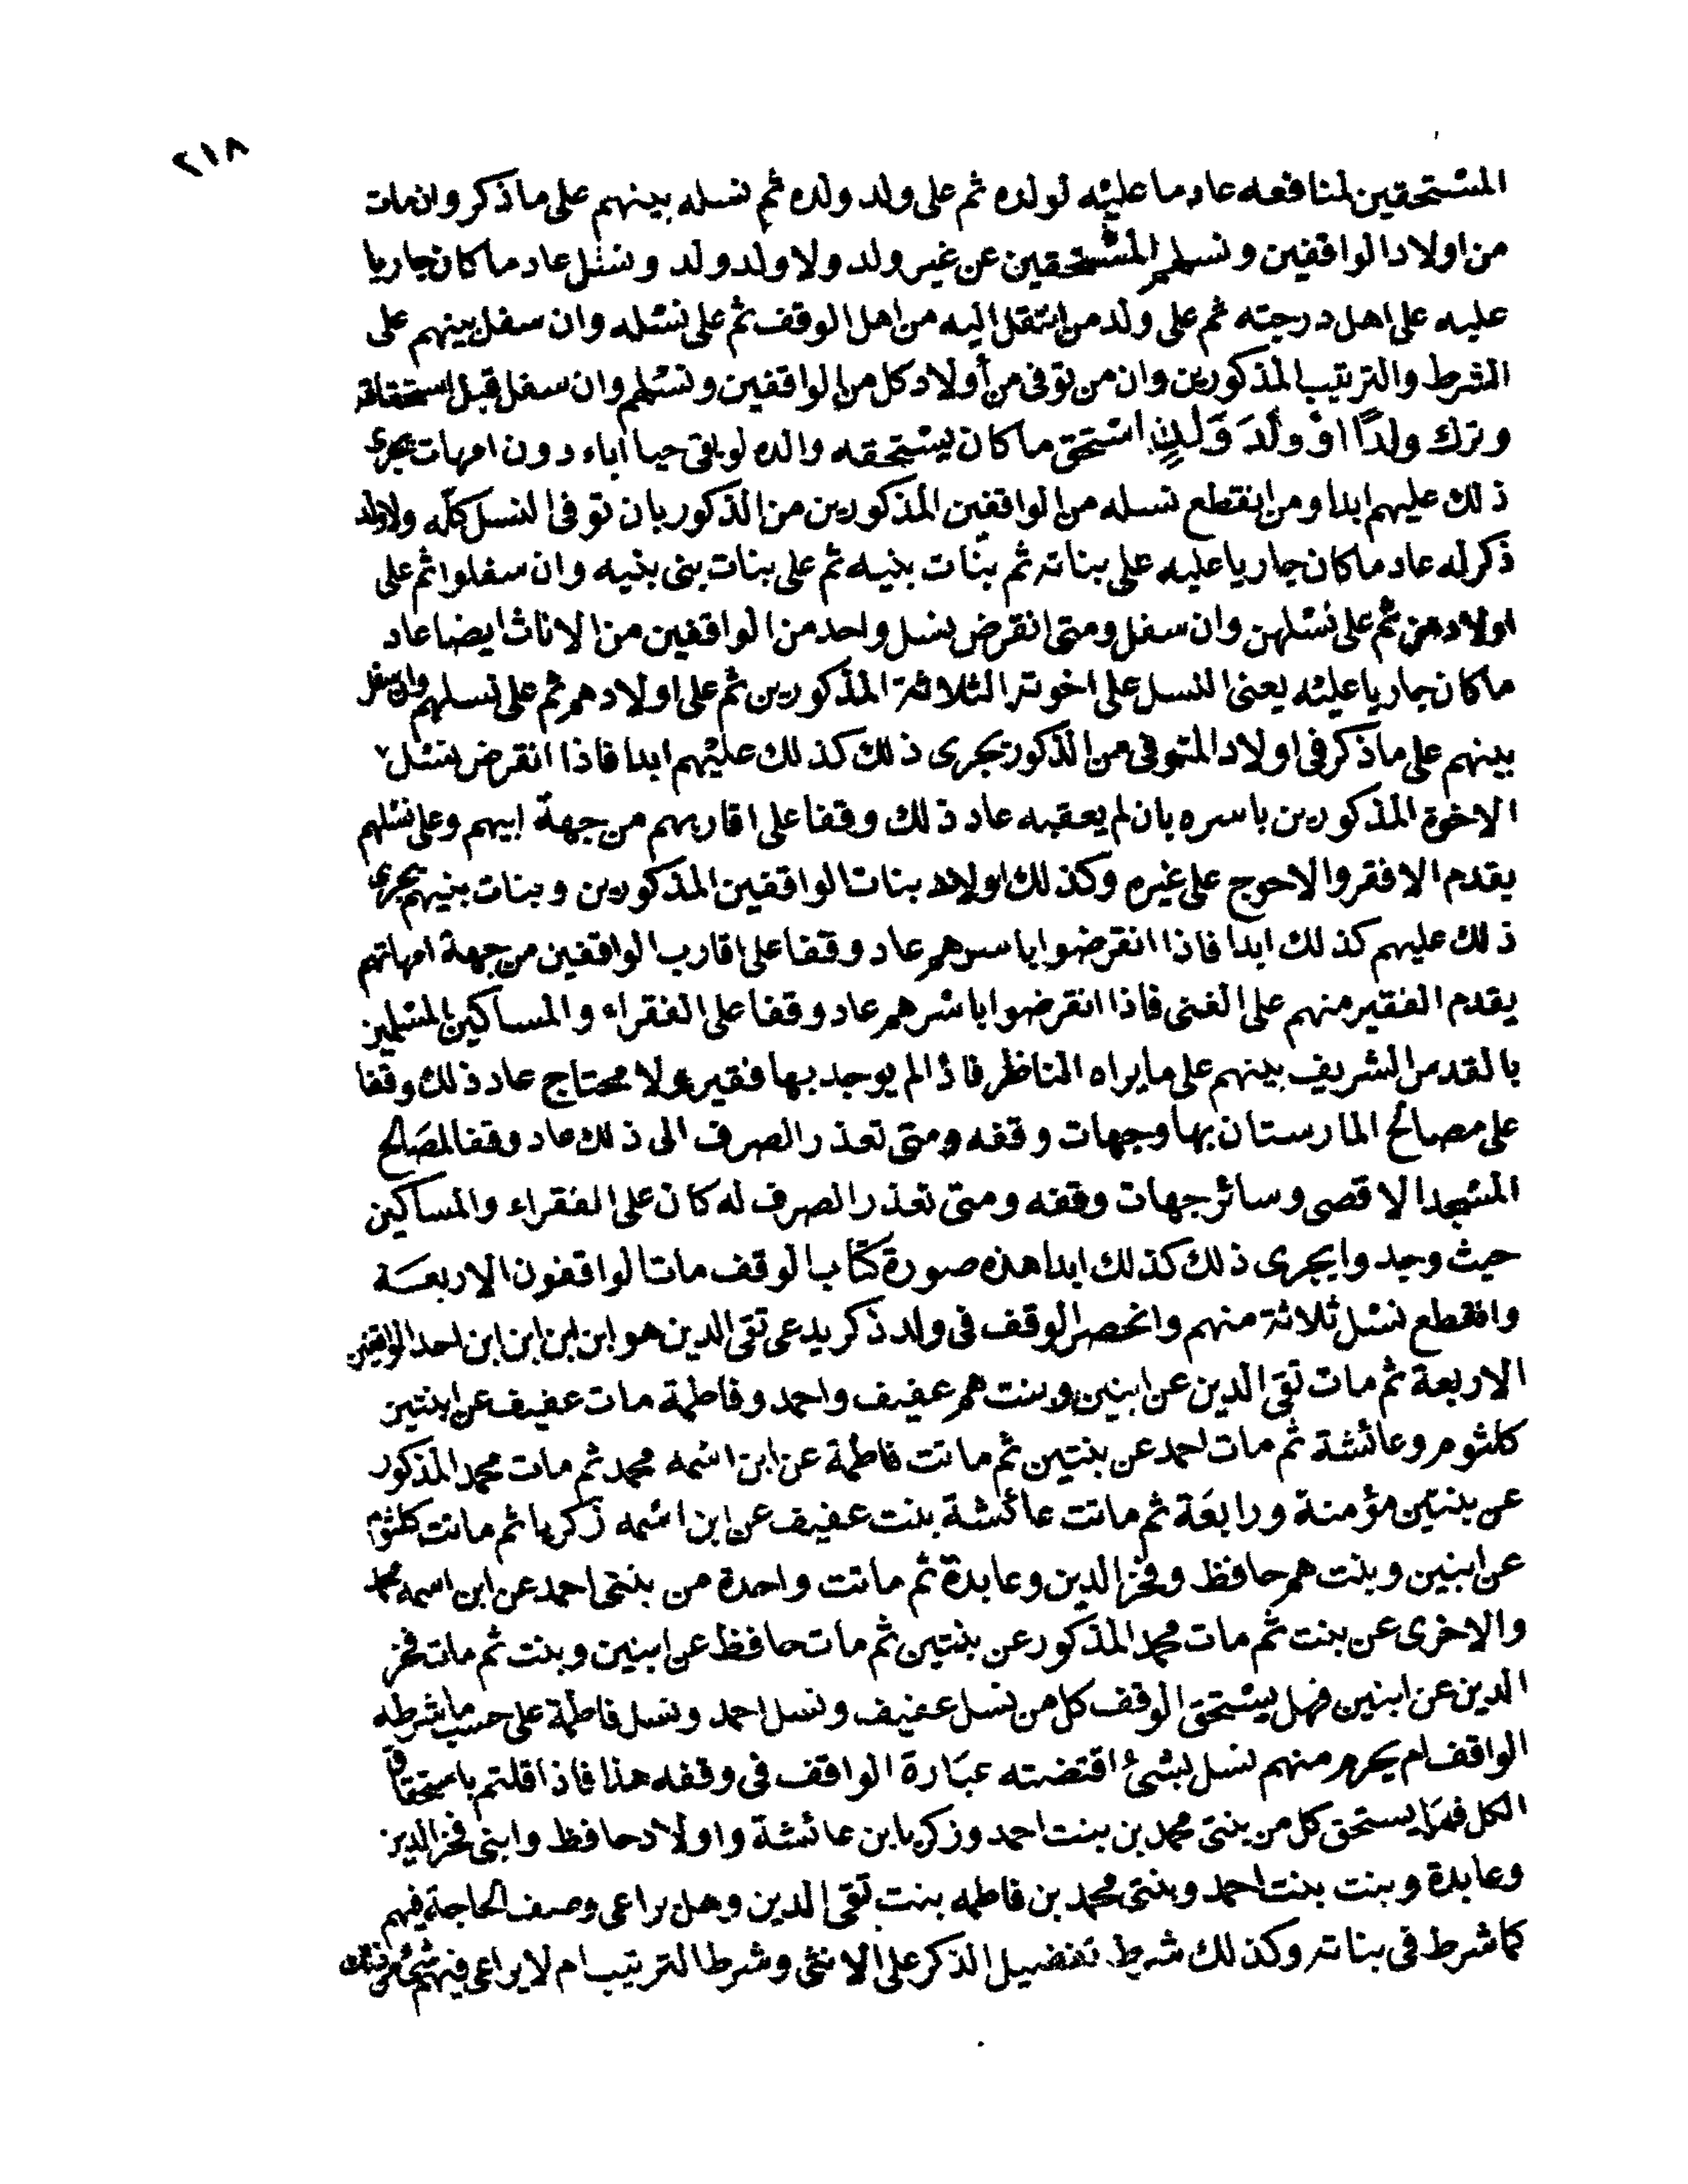 ٢١٨
المستحقين لمنافعه عاد ما عليه لولده ثم على ولد ولده ثم نسله بينهم على ما ذكر وان مات
من اولاد الواقفين ونسلهم المستحقين عن غير ولد ولا ولد ولد ونسل عاد ما كان جاريا
عليه على اهل درجته ثم على ولد من انتقل اليه من اهل الوقف ثم على نسله وان سفل بينهم على
الشرط والترتيب المذكورين وان من توفى من أولاد كل من الواقفين ونسلهم وان سفل قبل استحقاقه
وترك ولدًا او ولدَ وَلَدٍ استحق ما كان يستحقه والده لو بقى حيا اباء دون امهات يجرى
ذلك عليهم ابدا ومن انقطع نسله من الواقفين المذكورين من الذكور بان توفى النسل كله ولا ولد
ذكر له عاد ما كان جاريا عليه على بناته ثم بنات بنيه ثم على بنات بنى بنيه وان سفلوا ثم على
اولادهن ثم على نسلهن وان سفل ومتى انقرض نسل واحد من الواقفين من الاناث ايضا عاد
ما كان جاريا عليه يعنى النسل على اخوته الثلاثة المذكورين ثم على اولادهم ثم على نسلهم وان سفل
بينهم على ما ذكر فى اولاد المتوفى من الذكور يجرى ذلك كذلك عليهم ابدا فاذا انقرض نسل
الاخوة المذكورين باسره بان لم يعقبه عاد ذلك وقفا على اقاربهم من جهة ابيهم وعلى نسلهم
يقدم الافقر والاحوج على غيره وكذلك اولاد بنات الواقفين المذكورين وبنات بنيهم يجرى
ذلك عليهم كذلك ابدا فاذا انقرضوا باسرهم عاد وقفا على اقارب الواقفين من جهة امهاتهم
يقدم الفقير منهم على الغنى فاذا انقرضوا باسرهم عاد وقفا على الفقراء والمساكين المسلمين
بالقدس الشريف بينهم على ما يراه الناظر فاذا لم يوجد بها فقير ولا محتاج عاد ذلك وقفا
على مصالح المارستان بها وجهات وقفه ومتى تعذر الصرف الى ذلك عاد وقفا لمصالح
المسجد الاقصى وسائر جهات وقفه ومتى تعذر الصرف له كان على الفقراء والمساكين
حيث وجدوا يجرى ذلك كذلك ابدا هذه صورة كتاب الوقف مات الواقفون الاربعة
وانقطع نسل ثلاثة منهم وانحصر الوقف فى ولد ذكر يدعى تقى الدين هو ابن ابن ابن ابن احد الواقفين
الاربعة ثم مات تقى الدين عن ابنين وبنت هم عفيف واحمد وفاطمة مات عفيف عن ابنتين
كلثوم وعائشة ثم مات احمد عن بنتين ثم ماتت فاطمة عن ابن اسمه محمد ثم مات محمد المذكور
عن بنتين مؤمنة ورابعَة ثم ماتت عائشة بنت عفيف عن ابن اسمه زكريا ثم ماتت كلثوم
عن ابنين وبنت هم حافظ وفخر الدين وعابدة ثم ماتت واحدة من بنتى احمد عن ابن اسمه محمد
والاخرى عن بنت ثم مات محمد المذكور عن بنتين ثم مات حافظ عن ابنين وبنت ثم مات فخر
الدين عن ابنين فهل يستحق الوقف كل من نسل عفيف ونسل احمد ونسل فاطمة على حسب ما شرطه
الواقف ام يحرم منهم نسل بشئ اقتضته عبَارة الواقف فى وقفه هذا فاذا قلتم باستحقاق
الكل فما يستحق كل من بنتى محمد بن بنت احمد وزكريا بن عائشة واولاد حافظ وابنى فخر الدين
وعابدة وبنت بنت احمد وبنتى محمد بن فاطمه بنت تقى الدين وهل يراعى وصف الحاجة فيهم
كما شرط فى بناته وكذلك شرط تفضيل الذكر على الانثى وشرط الترتيب ام لا يراعى فيهم شئ من ذلك